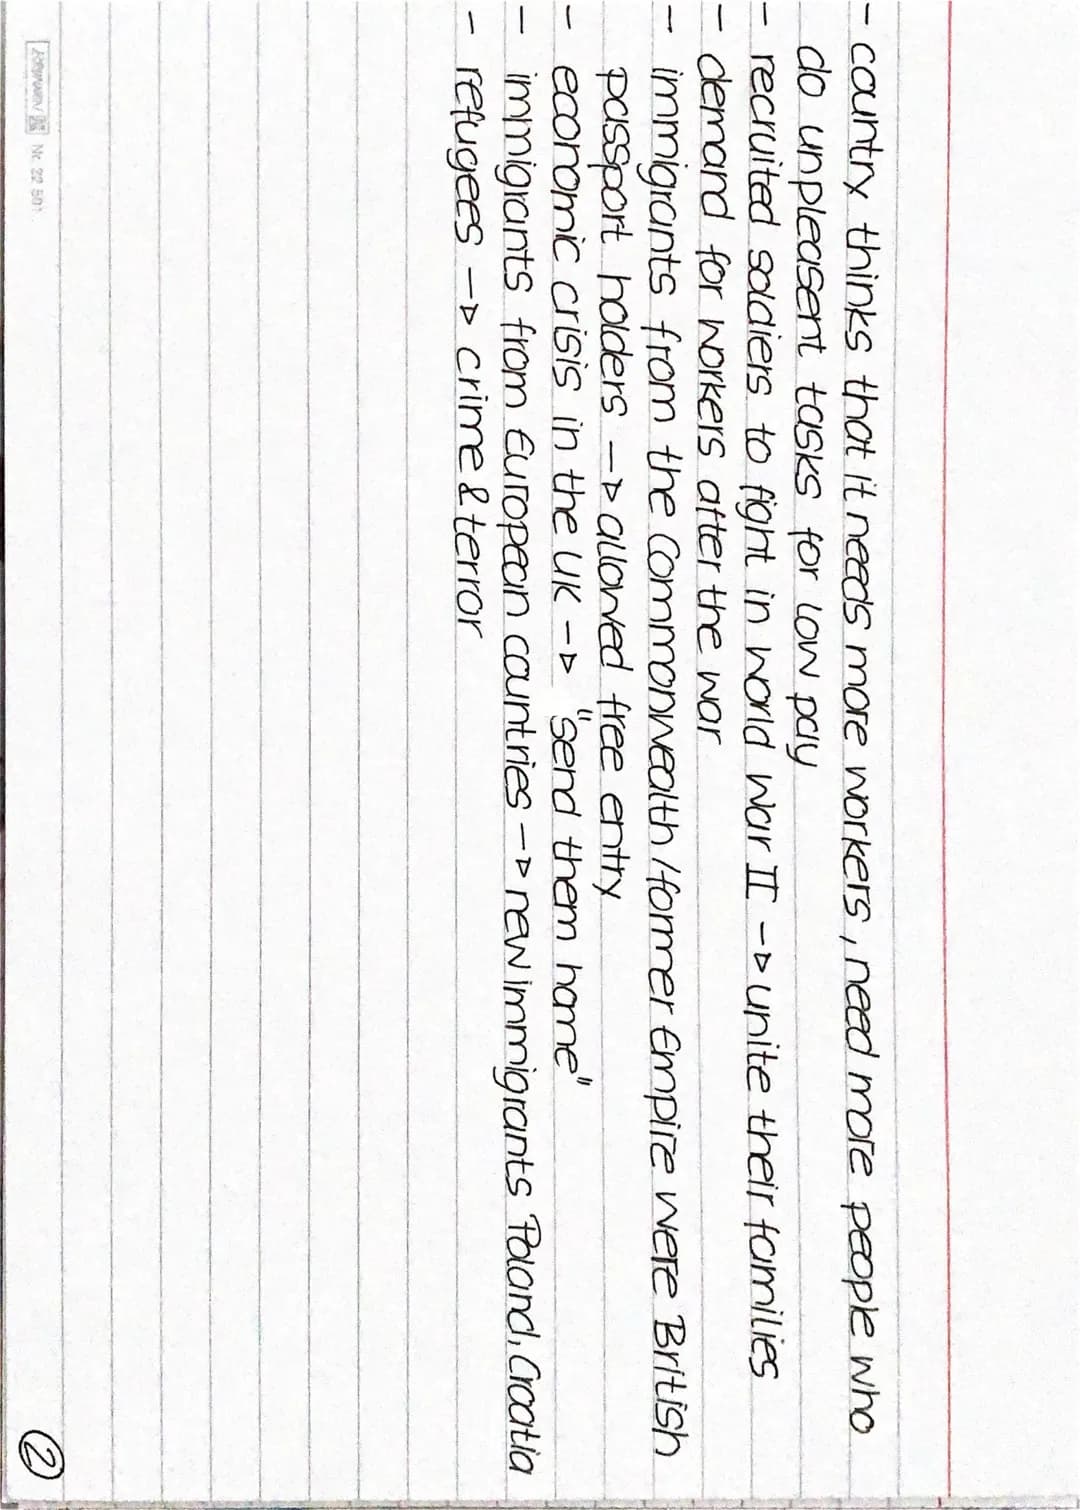 - country thinks that it needs more workers, need more people who
do unpleasent tasks for low pay
- recruited soldiers to fight in world war II -> unite their families
- demand for workers after the war
- immigrants from the Commonwealth / former Empire were British
passport holders -> allowed free entry
- economic crisis in the UK -> "send them home"
- immigrants from European countries -> new immigrants Poland, Croatia
- refugees -> crime & terror
Nr. 22 501
2